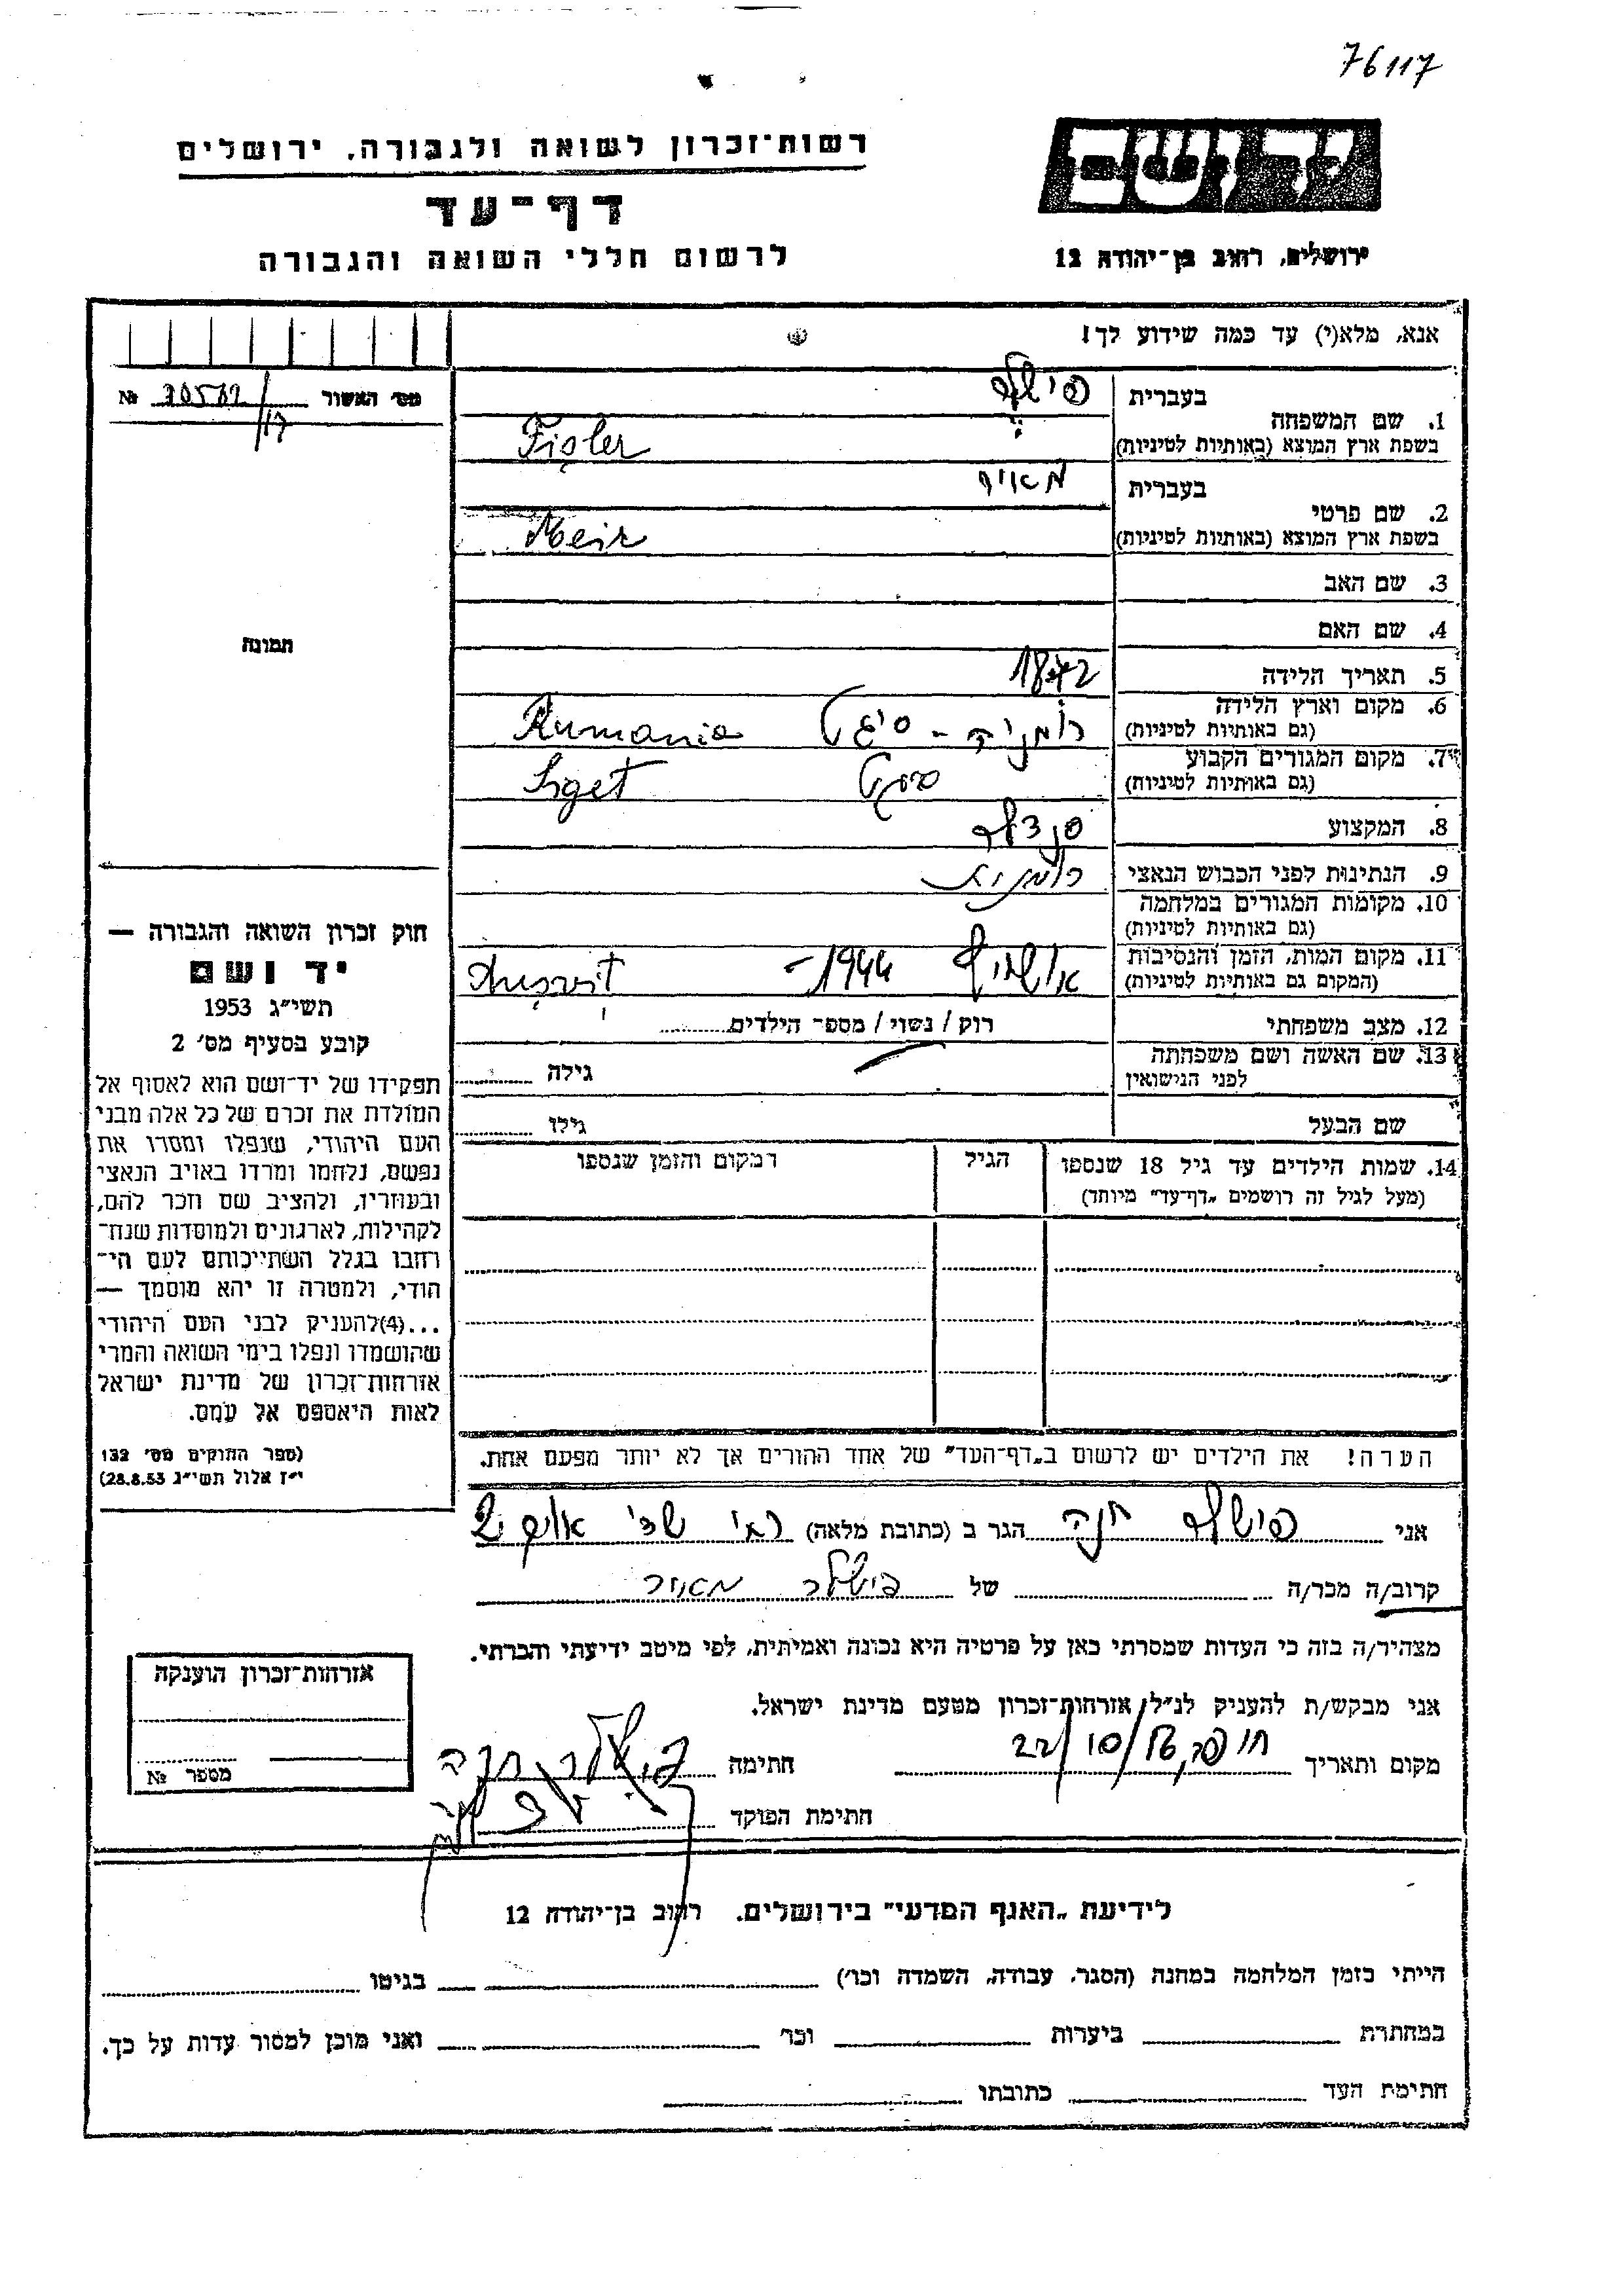 76117
יד ושם
רשות־זכרון לשואה ולגבורה, ירושלים
דף־עד
לרשום חללי השואה והגבורה
ירושלים, רחוב בן־יהודה 12
אנא, מלא(י) עד כמה שידוע לך!
מס׳ האשור № 70572/17
1. שם המשפחה בעברית פישלר
בשפת ארץ המוצא (באותיות לטיניות) Fişler
2. שם פרטי בעברית מאיר
בשפת ארץ המוצא (באותיות לטיניות) Meir
3. שם האב
4. שם האם
תמונה
5. תאריך הלידה 1872
6. מקום וארץ הלידה רומניה - סיגט Rumania
(גם באותיות לטיניות)
7. מקום המגורים הקבוע סיגט Siget
(גם באותיות לטיניות)
8. המקצוע סנדלר
9. הנתינות לפני הכבוש הנאצי רומנית
10. מקומות המגורים במלחמה
(גם באותיות לטיניות)
11. מקום המות, הזמן והנסיבות 1944-
(המקום גם באותיות לטיניות) Auşviţ
12. מצב משפחתי רוק / נשוי / מספר הילדים
13. שם האשה ושם משפחתה גילה
לפני הנישואין
שם הבעל גילו
14. שמות הילדים עד גיל 18 שנספו הגיל המקום והזמן שנספו
(מעל לגיל זה רושמים „דף־עד״ מיוחד)
חוק זכרון השואה והגבורה —
יד ושם
תשי״ג 1953
קובע בסעיף מס׳ 2
תפקידו של יד־ושם הוא לאסוף אל
המולדת את זכרם של כל אלה מבני
העם היהודי, שנפלו ומסרו את
נפשם, נלחמו ומרדו באויב הנאצי
ובעוזריו, ולהציב שם וזכר להם,
לקהילות, לארגונים ולמוסדות שנח־
רחבו בגלל השתייכותם לעם הי־
הודי, ולמטרה זו יהא מוסמך —
...(4)להעניק לבני העם היהודי
שהושמדו ונפלו בימי השואה והמרי
אזרחות־זכרון של מדינת ישראל
לאות היאספם אל עמם.
(ספר החוקים מס׳ 132
י״ז אלול תשי״ג 28.8.53)
הערה! את הילדים יש לרשום ב„דף־העד״ של אחד ההורים אך לא יותר מפעם אחת.
אני פישלר חנה הגר ב (כתובת מלאה)
קרוב/ה מכר/ה של פישלר מאיר
מצהיר/ה בזה כי העדות שמסרתי כאן על פרטיה היא נכונה ואמיתית, לפי מיטב ידיעתי והכרתי.
אני מבקש/ת להעניק לנ״ל אזרחות־זכרון מטעם מדינת ישראל.
מקום ותאריך 22/10/ חתימה פישלר חנה
חתימת הפוקד
אזרחות־זכרון הוענקה
מספר №
לידיעת „האגף המדעי״ בירושלים. רחוב בן־יהודה 12
הייתי בזמן המלחמה במחנה (הסגר, עבודה, השמדה וכו׳) בגיטו
במחתרת ביערות וכו׳ ואני מוכן למסור עדות על כך.
חתימת העד כתובתו